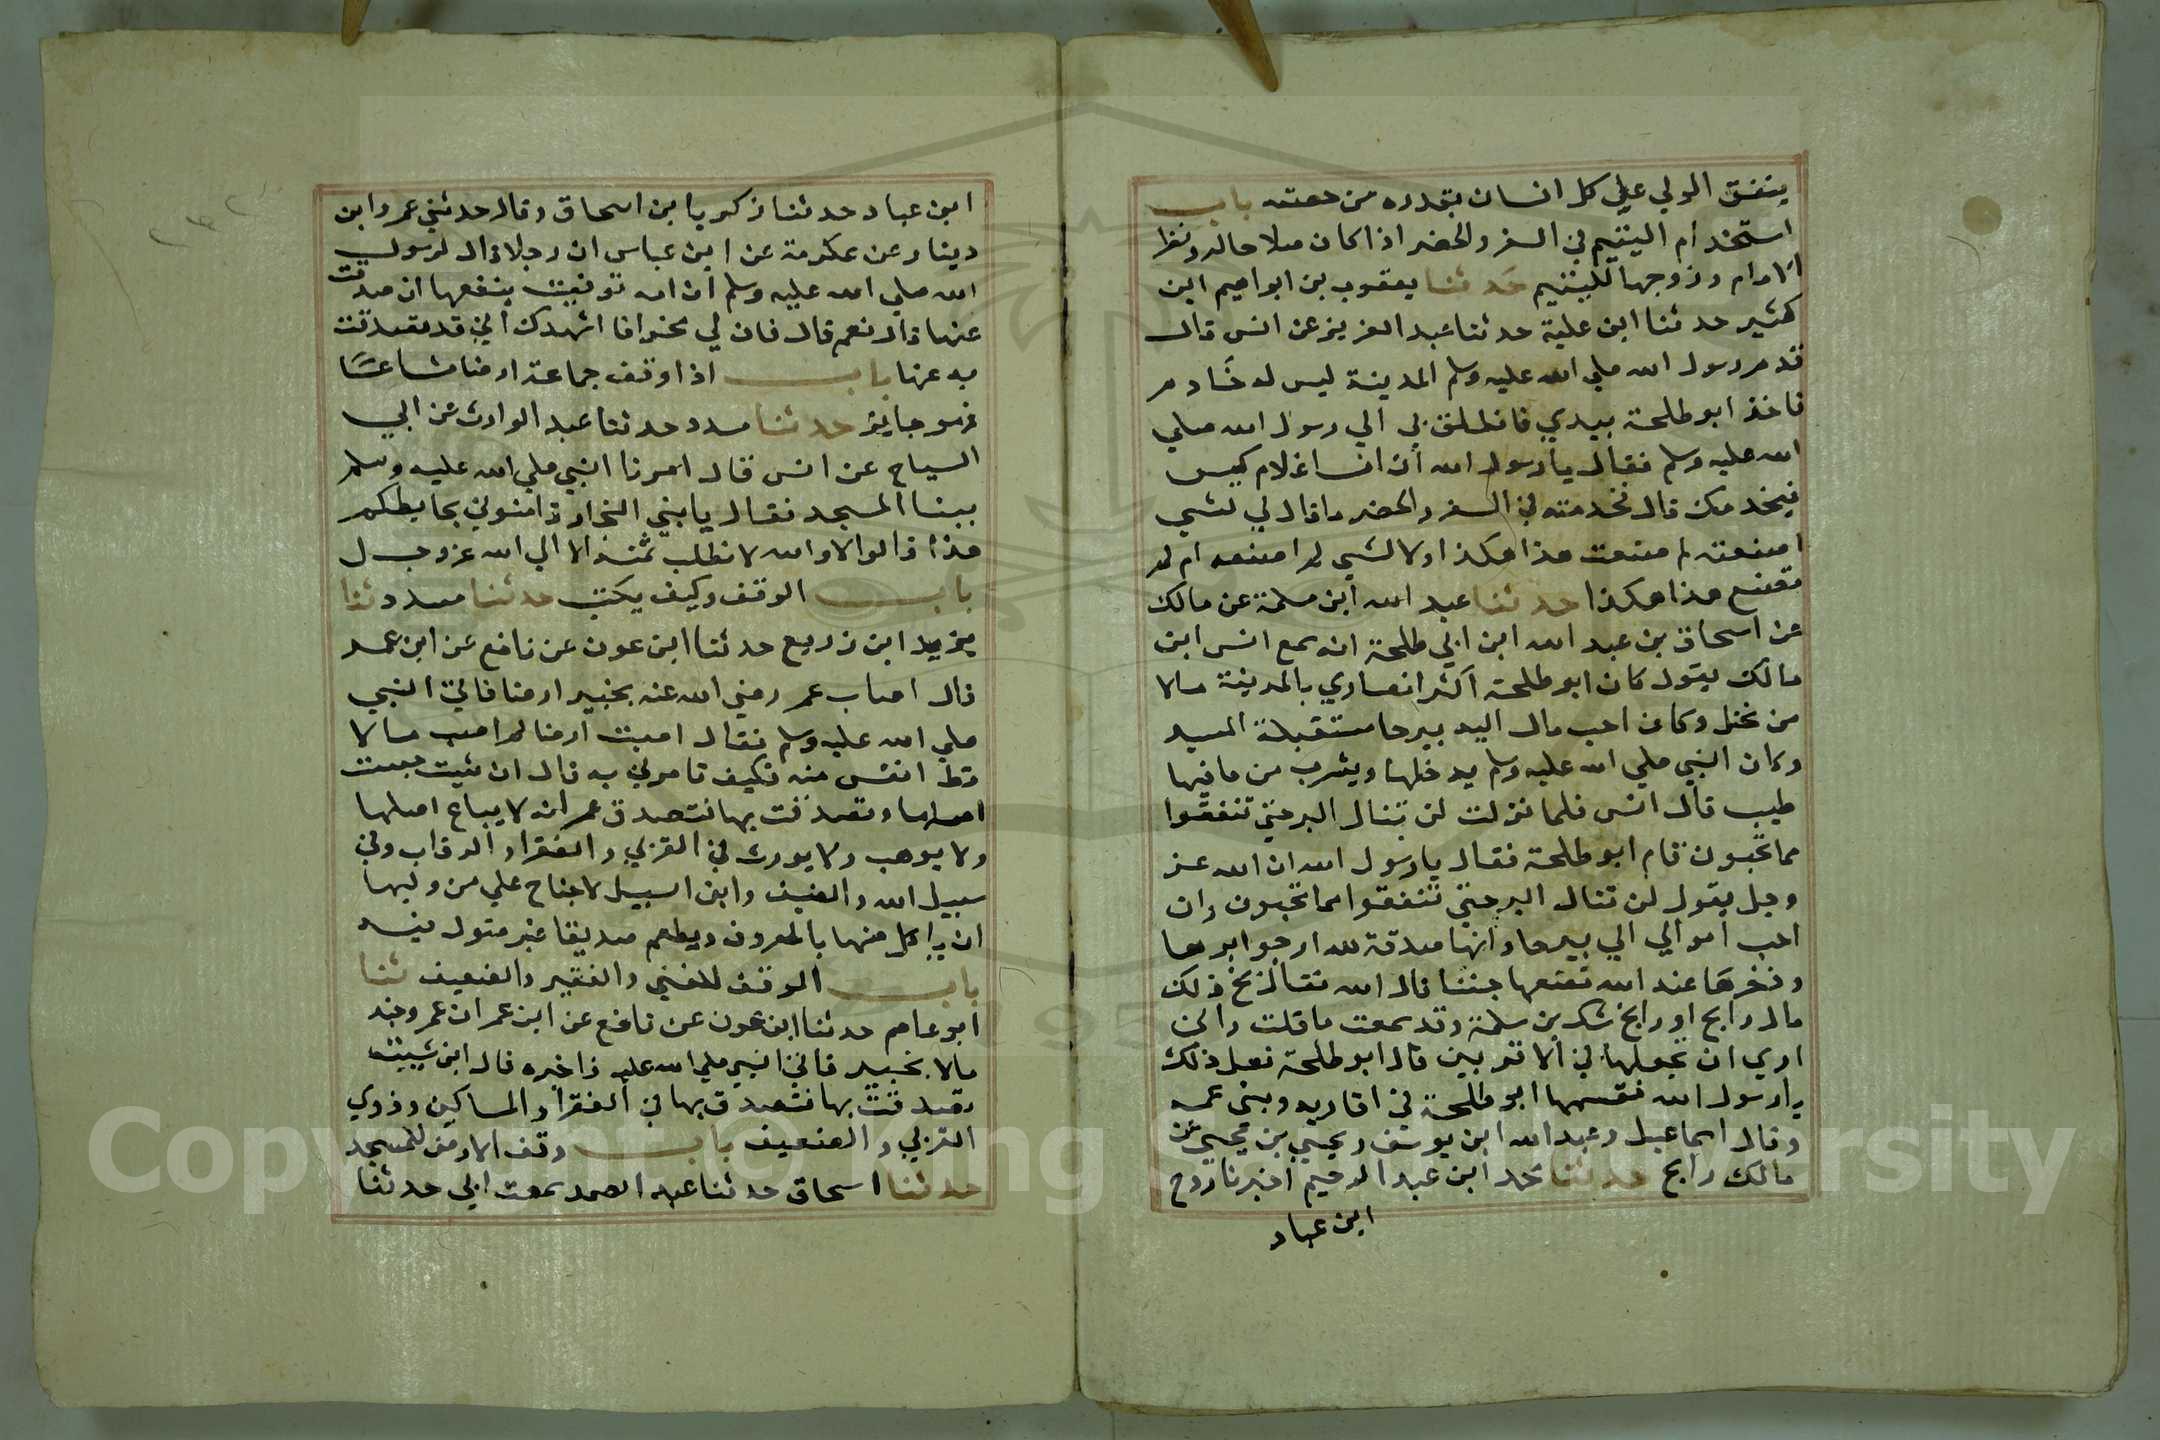 ينفق الولي علي كل انسان بقدره من حصته باب
استخدام اليتيم في السفر والحضر اذا كان صلاحا له ونظر
الام او زوجها لليتيم حدثنا يعقوب بن ابراهيم ابن
كثير حدثنا ابن علية حدثنا عبد العزيز عن انس قال
قدم رسول الله صلي الله عليه وسلم المدينة ليس له خادم
فاخذ ابو طلحة بيدي فانطلق بي الي رسول الله صلي
الله عليه وسلم فقال يا رسول الله ان انسا غلام كيس
فيخدمك قال فخدمته في السفر والحضر ما قال لي لشي
صنعته لم صنعت هذا هكذا ولا لشي لم اصنعه لم لم
تصنع هذا هكذا حدثنا عبد الله ابن مسلمة عن مالك
عن اسحاق بن عبد الله ابن ابي طلحة انه سمع انس ابن
مالك يقول كان ابو طلحة اكثر انصاري بالمدينة مالا
من نخل وكان احب مال اليه بيرحا مستقبلة المسجد
وكان النبي صلي الله عليه وسلم يدخلها ويشرب من ما فيها
طيب قال انس فلما نزلت لن تنال البر حتي تنفقوا
مما تحبون قام ابو طلحة فقال يا رسول الله ان الله عز
وجل يقول لن تنال البر حتي تنفقوا مما تحبون وان
احب اموالي الي بيرحا وانها صدقة لله ارجوا برها
وذخرها عند الله فضعها حيث اراك الله فقال بخ ذلك
مال رابح او رايح شك بن سلمة وقد سمعت ما قلت واني
اري ان تجعلها في الاقربين قال ابو طلحة نعل ذلك
يا رسول الله فقسمها ابو طلحة في اقاربه وبني عمه
وقال اسماعيل وعبد الله ابن يوسف ويحيي بن يحيي عن
مالك رايح حدثنا محمد ابن عبد الرحيم اخبرنا روح
ابن عباد
ابن عباد حدثنا زكريا ابن اسحاق وقال حدثني عمرو ابن
دينار عن عكرمة عن ابن عباس ان رجلا قال لرسول
الله صلي الله عليه وسلم ان امه توفيت ينفعها ان تصدقت
عنها قال نعم قال فان لي مخرافا اشهدك اني قد تصدقت
به عنها باب اذا وقف جماعة ارضا مشاعا
فهو جايز حدثنا مسدد حدثنا عبد الوارث عن ابي
السياح عن انس قال امرنا النبي صلي الله عليه وسلم
ببنا المسجد فقال يا بني النجار ثامنوني بحايطكم
هذا قالوا لا والله لا نطلب ثمنه الا الي الله عز وجل
باب الوقف وكيف يكتب حدثنا مسدد ثنا
يزيد ابن زريع حدثنا ابن عون عن نافع عن ابن عمر
قال اصاب عمر رضي الله عنه بخيبر ارضا فاتي النبي
صلي الله عليه وسلم فقال اصبت ارضا لم اصب مالا
قط انفس منه فكيف تامرني به قال ان شيت حبست
اصلها وتصدقت بها فتصدق عمر انه لا يباع اصلها
ولا يوهب ولا يورث في القربي والفقرا والرقاب وفي
سبيل الله والضيف وابن السبيل لا جناح علي من وليها
ان ياكل منها بالمعروف ويطعم صديقا غير متمول فيه
باب الوقف للغني والفقير والضعيف ثنا
ابو عاصم حدثنا ابن عون عن نافع عن ابن عمر ان عمر وجد
مالا بخيبر فاتي النبي صلي الله عليه فاخبره قال ان شيت
تصدقت بها فتصدق بها في الفقرا والمساكين وذوي
القربي والضعيف باب وقف الارض للمسجد
حدثنا اسحاق حدثنا عبد الصمد سمعت ابي حدثنا
Copyright © King Saud University